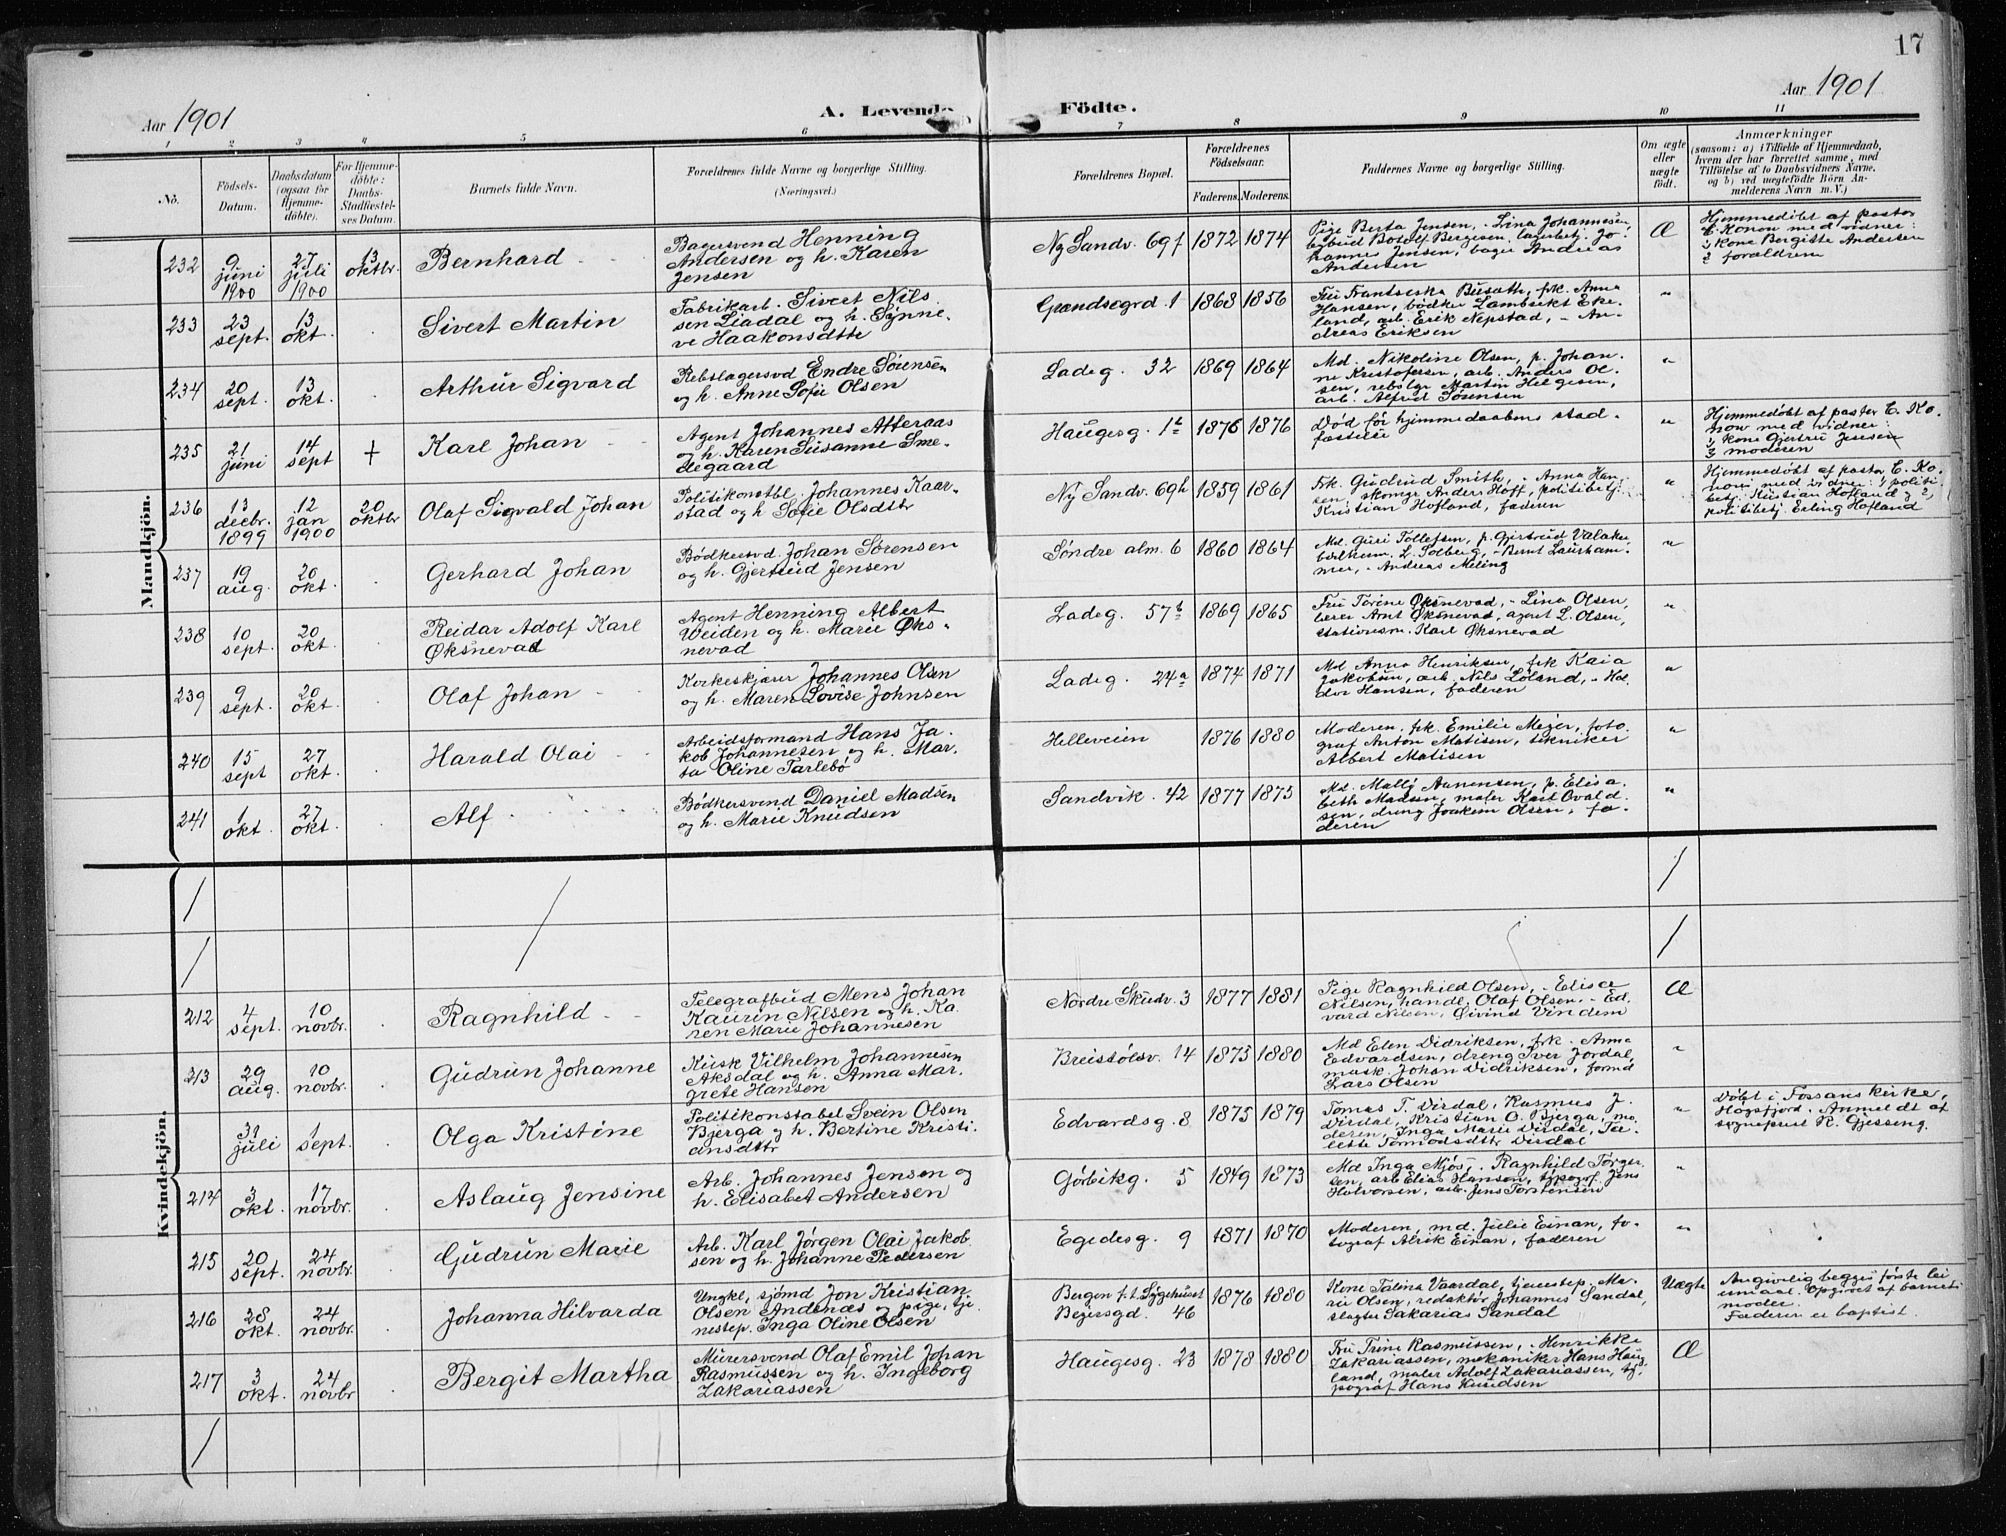 17
Aar 1901
A. Levende Födte.
Aar 1901
1 2 3 4 5 6 7 8 9 10 11
No.
Födsels-
Datum.
Daabsdatum
(ogsaa for
Hjemme-
döbte).
For Hjemme-
döbte:
Daabs-
Stadfæstel-
ses Datum.
Barnets fulde Navn.
Forældrenes fulde Navne og borgerlige Stilling.
(Næringsvei.)
Forældrenes Bopæl.
Forældrenes
Födselsaar.
Faderens. Moderens.
Faddernes Navne og borgerlige Stilling.
Om ægte
eller
uægte
födt.
Anmærkninger
(saasom: a) i Tilfælde af Hjemmedaab,
hvem der har forrettet samme, med
Tilföielse af to Daabsvidners Navne,
og b) ved uægtefödte Börn An-
melderens Navn m. V.)
Mandkjön.
232
9
juni
1900
27
juli
1900
13
oktbr.
Bernhard
Bagersvend Henning
Andersen og h. Karen
Jensen
Ny Sandv. 69 f
1872 1874
Pige Berta Jensen, - Lina Johannesen,
bybud Botolf Bergesen, lagerbetj. Jo-
hannes Jensen, bager Andreas
Andersen
Æ
Hjemmedøbt af pastor
E. Konow med vidner:
1, kone Bergitte Andersen
2, forældrene
233
23
sept.
13
okt.
Sivert Martin
Fabrikarb. Sivert Nils
sen Liadal og h. Synne-
ve Haakonsdttr
Grændsegrd. 1
1868 1856
Fru Frantseska Busath, frk. Anna
Hansen, bødker Lambrekt Eke-
land, arb. Erik Nepstad, - An-
dreas Eriksen
"
234
20
sept.
13
okt.
Arthur Sigvard
Rebslagersvd Endre Sørensen
og h. Anne Sofie Olsen
Ladeg. 32
1869 1864
Md. Nikoline Olsen, p. Johan-
ne Kristofersen, arb. Anders Ol-
sen, rebslgr Martin Helgesen,
arb. Alfred Sørensen
"
235
21
juni
14
sept
+
Karl Johan
Agent Johannes Atteraas
og h. Karen Susanne Sme-
degaard
Haugesg. 1b
1876 1876
Død før hjemmedaabens stad-
fæstelse
"
Hjemmedøbt af pastor E. Ko-
now med vidner:
1, kone Gjertru Jensen
2, moderen
236
13
decbr.
1899
12
jan
1900
20
oktbr
Olaf Sigvald Johan
Politikonstbl. Johannes Kaar-
stad og h. Sofie Olsdttr
Ny Sandv. 69h
1859 1861
Frk. Gudrud Smith, - Anna Han-
sen, skomgr Anders Hoff, politibetj.
Kristian Hofland, faderen
"
Hjemmedøbt af pastor E. Ko-
now med vidner: 1, politi-
betj. Kristian Hofland og 2,
politibetj. Erling Hofland
237
19
aug.
20
okt.
Gerhard Johan
Bødkersvd. Johan Sørensen
og h. Gjertrud Jensen
Søndre alm. 6
1860 1864
Md. Guri Tollefsen, p. Gjertrud Valaker,
L. Solberg, - Bernt Lausham-
mer, - Andreas Meling
"
238
10
sept.
20
okt.
Reidar Adolf Karl
Øksnevad
Agent Henning Albert
Weiden og h. Marie Øks-
nevad
Ladeg. 57b
1869 1865
Fru Torine Øksnevad, - Lina Olsen,
lærer Arnt Øksnevad, agent L. Olsen,
stationsm. Karl Øksnevad
"
239
9
sept.
20
okt.
Olaf Johan
Korkeskjærer Johannes Olsen
og h. Maren Lovise Johnsen
Ladeg. 24a
1874 1871
Md Anna Henriksen, frk Kaia
Jakobsen, arb. Nils Løland, - Hal-
dor Hansen, faderen
"
240
15
sept
27
okt.
Harald Olai
Arbeidsformand Hans Ja-
kob Johannesen og h. Mar-
ta Oline Tarlebø
Helleveien
1876 1880
Moderen, frk. Emilie Meyer, foto-
graf Anton Matisen, tekniker
Albert Matisen
"
241
1
okt.
27
okt.
Alf
Bødkersvend Daniel Madsen
og h. Marie Knudsen
Sandvik. 42
1877 1875
Md. Mally Aanensen, p. Elisa-
beth Madsen, maler Karl Osvald-
sen, dreng Joakim Olsen, fa-
deren
"
Kvindekjön.
212
4
sept.
10
novbr.
Ragnhild
Telegrafbud Mens Johan
Kaurin Nilsen og h. Ka-
ren Marie Johannesen
Nordre Skudv. 3
1877 1881
Pige Ragnhild Olsen, - Elisa
Nilsen, handl. Olaf Olsen, - Ed-
vard Nilsen, Øivind Vindem
Æ
213
29
aug.
10
novbr.
Gudrun Johanne
Kusk Vilhelm Johannesen
Aksdal og h. Anna Mar-
grete Hansen
Breistølsv. 14
1875 1880
Md Elen Didriksen, frk. Anna
Edvardsen, dreng Iver Jordal,
mask. Johan Didriksen, formd
Lars Olsen
"
31
juli
1
sept.
Olga Kristine
Politikonstabel Svein Olsen
Bjerga og h. Bertine Kristi-
ansdttr
Edvardsg. 8
1875 1879
Tomas T. Dirdal, Rasmus J.
Dirdal, Kristian O. Bjerga, mo-
deren, Inga Marie Dirdal, Ta-
lette Tormodsdttr Dirdal
"
Døbt i Fossans kirke,
Høgsfjord. Anmeldt af
sogneprest R. Gjessing.
214
3
okt.
17
novbr.
Aslaug Jensine
Arb. Johannes Jensen og
h. Elisabet Andersen
Gørbitzg. 5
1849 1873
Md Inga Mjøs, - Ragnhild Torger-
sen, arb Elias Hansen, typograf Jens
Halvorsen, arb. Jens Torstensen
"
215
20
sept.
24
novbr.
Gudrun Marie
Arb. Karl Jørgen Olai Jakob-
sen og h. Johanne Pedersen
Egedesg. 9
1871 1870
Moderen, md. Julie Einan, fo-
tograf Alrik Einan, faderen
"
216
28
okt.
24
novbr.
Johanna Hilvarda
Ungkl, sjømd Jon Kristian
Olsen Andenæs og pige, tje-
nestep. Inga Oline Olsen
Bergen f.t. Sygehuset
Beiersgd. 46
1876 1880
Kone Talina Vaardal, tjenestep. Ma-
rie Olsen, redaktør Johannes Sandal,
slagter Sakarias Sandal
Uægte
Angivelig begges første lei-
ermaal. Opgivet af barnets
moder.
Faderen er baptist.
217
3
okt.
24
novbr
Bergit Martha
Murersvend Olaf Emil Johan
Rasmussen og h. Ingeborg
Zakariassen
Haugesg. 23
1878 1880
Fru Trine Rasmussen, - Henrikke
Zakariassen, mekaniker Hans Hau-
land, maler Adolf Zakariassen, ty-
pograf Hans Knudsen
Æ